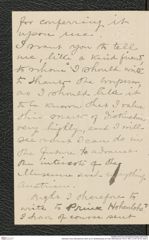 for conferring it
upon me.
I want you to tell
me, like a kind friend,
to whom I should write
to thank the Emperor
as I should like it
to be known that I value
this mark of distinction
very highly, and I will
see what I can do in
the future to advance
the interests of the
Museum and anything
Austrian.
Ought I therefore to
write to Prince
I have of course sent